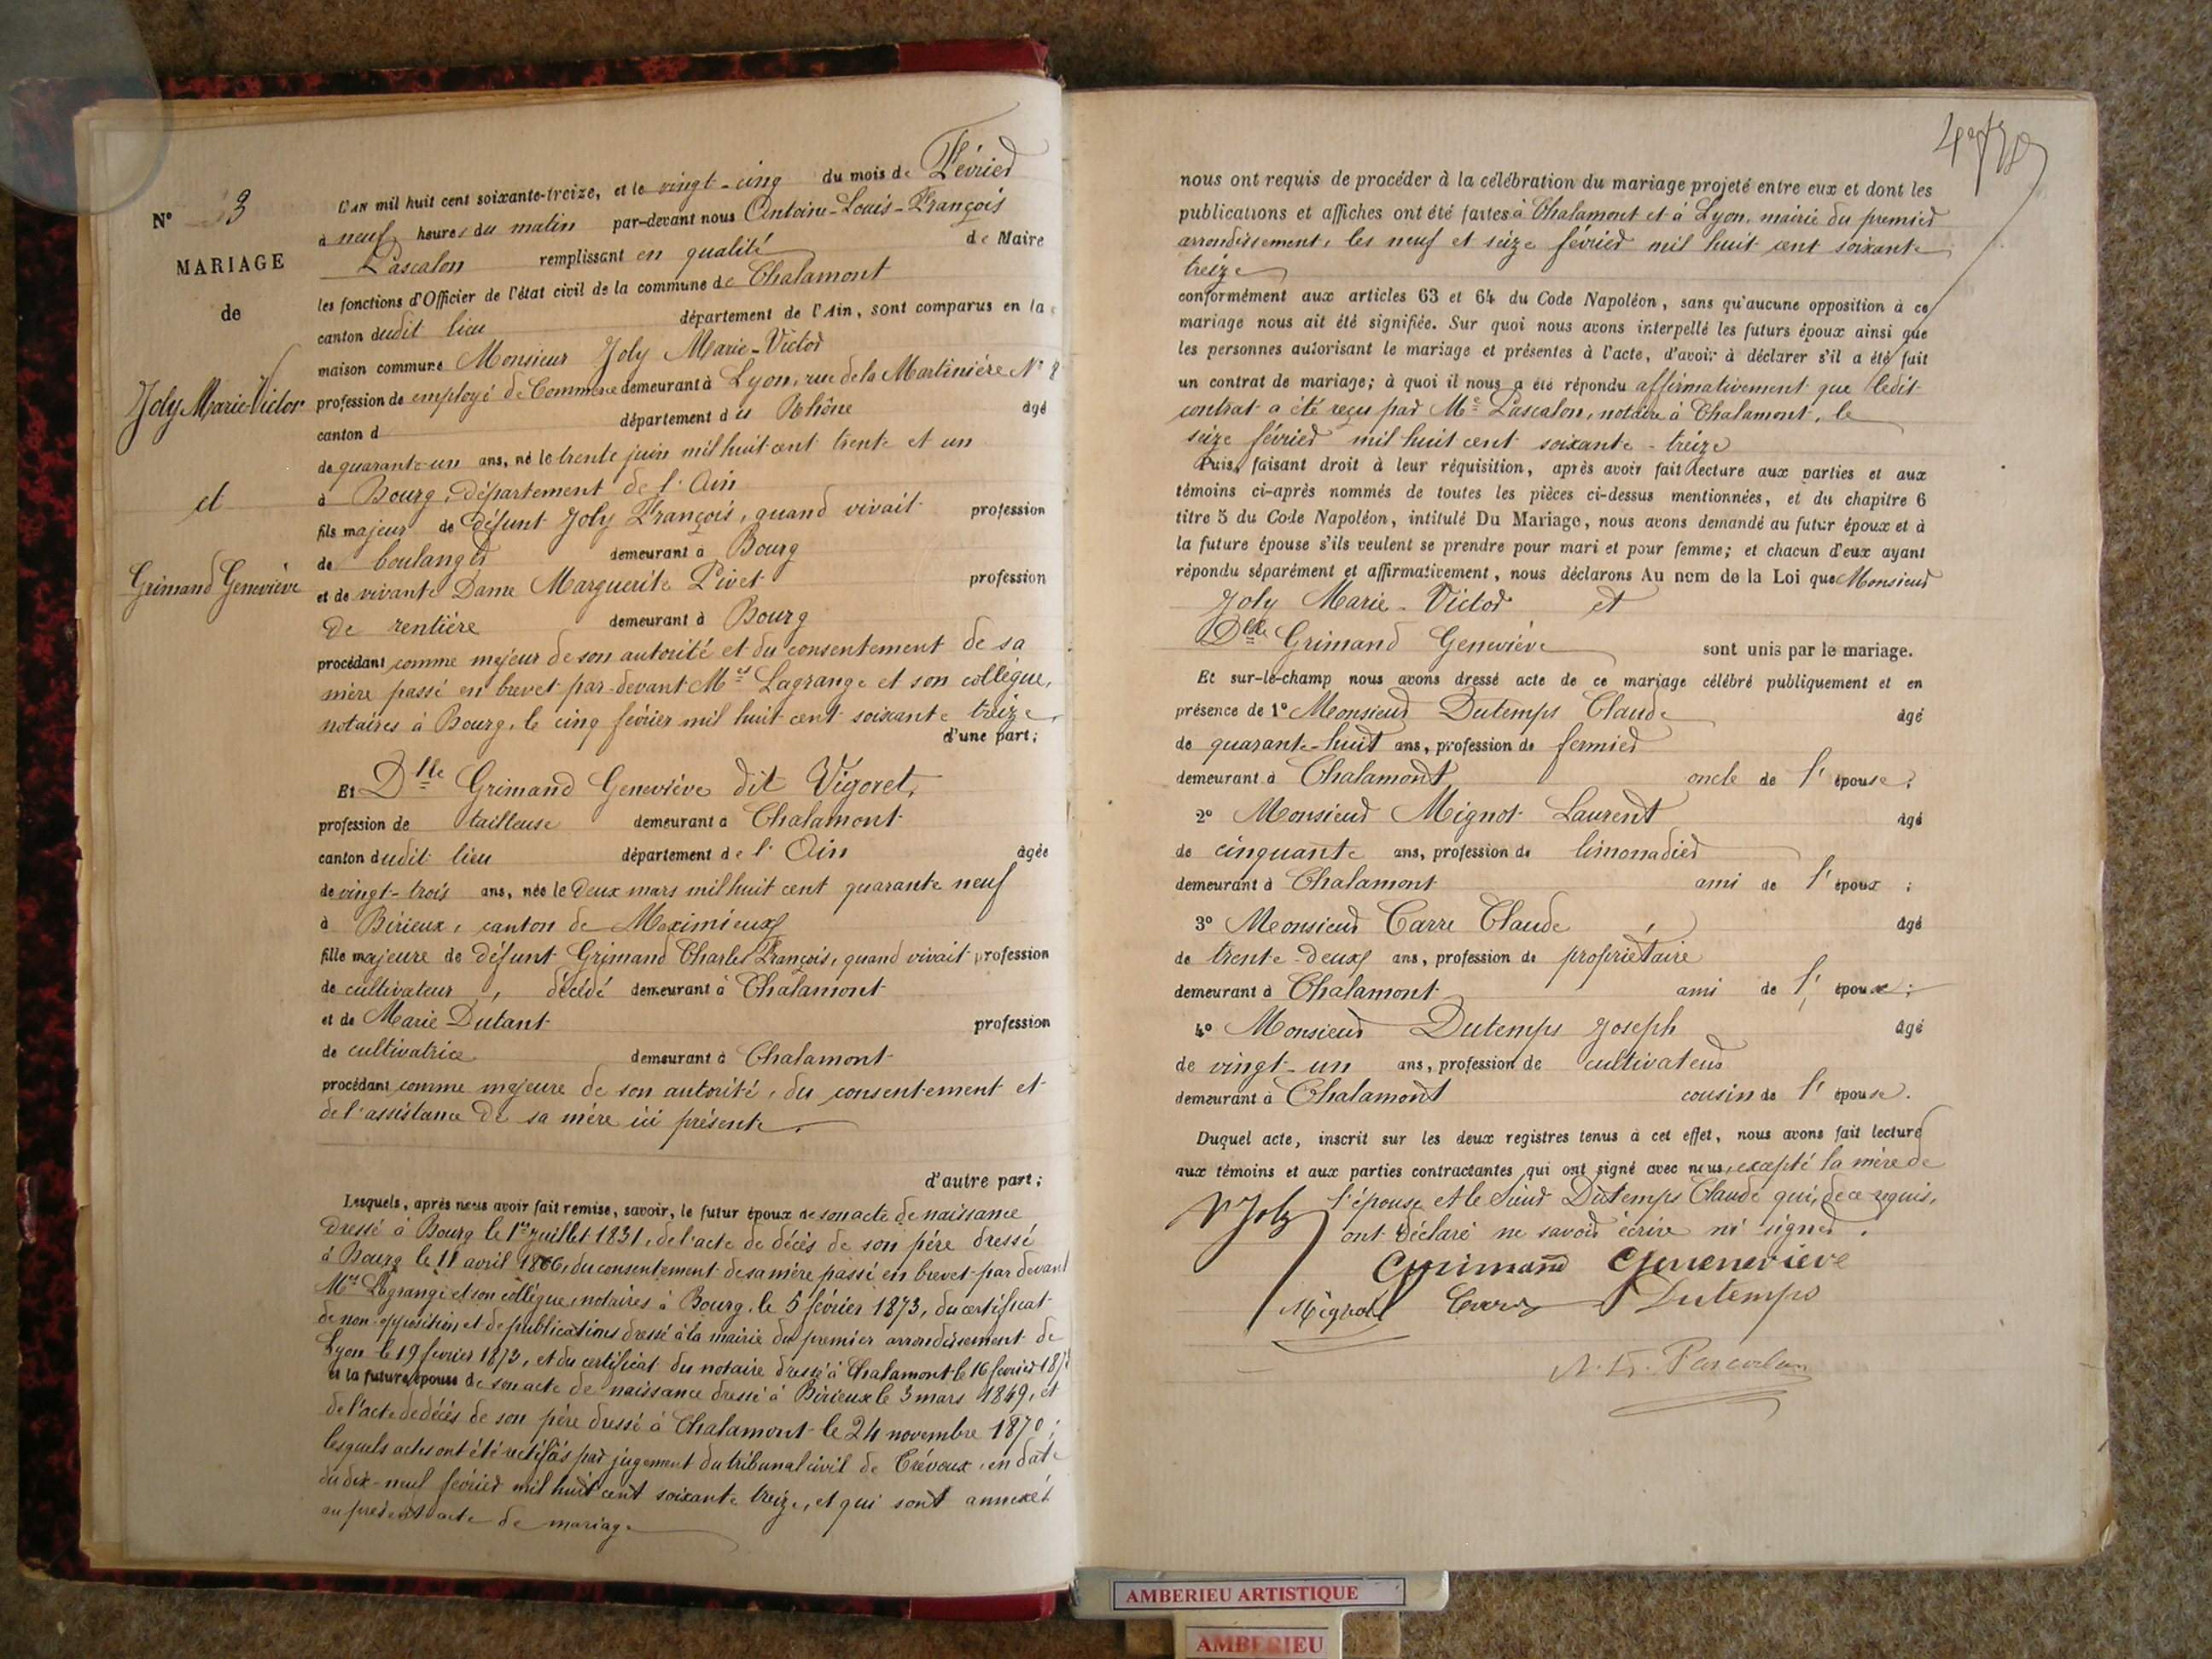 N° 3
MARIAGE
de
Joly Marie-Victor
et
Grimand Geneviève
L'AN mil huit cent soixante-treize, et le vingt-cinq du mois de Février
à neuf heures du matin par-devant nous Antoine-Louis-François
Pascalon remplissant en qualité de Maire
les fonctions d'Officier de l'état civil de la commune de Chalamont
canton dudit lieu département de l'Ain, sont comparus en la
maison commune Monsieur Joly Marie-Victor
profession de employé de Commerce demeurant à Lyon, rue de la Martinière N° 8
canton d département du Rhône âgé
de quarante-un ans, né le trente juin mil huit cent trente et un
à Bourg, département de l'Ain
fils majeur de défunt Joly François, quand vivait profession
de boulanger demeurant à Bourg
et de vivante Dame Marguerite Pivet profession
de rentière demeurant à Bourg
procédant comme majeur de son autorité et du consentement de sa
mère passé en brevet par-devant Mes Lagrange et son collègue,
notaires à Bourg, le cinq février mil huit cent soixante treize,
d'une part;
Et Dlle Grimand Geneviève dit Vigoret,
profession de tailleuse demeurant à Chalamont
canton dudit lieu département de l'Ain âgée
de vingt-trois ans, née le deux mars mil huit cent quarante neuf
à Birieux, canton de Meximieux
fille majeure de défunt Grimand Charles François, quand vivait profession
de cultivateur, décédé demeurant à Chalamont
et de Marie Dutant profession
de cultivatrice demeurant à Chalamont
procédant comme majeure de son autorité, du consentement et
de l'assistance de sa mère ici présente.
d'autre part;
Lesquels, après nous avoir fait remise, savoir, le futur époux de son acte de naissance
dressé à Bourg le 1er juillet 1831, de l'acte de décès de son père dressé
à Bourg le 11 avril 1866, du consentement de sa mère passé en brevet par devant
Mes Lagrange et son collègue, notaires à Bourg, le 5 février 1873, du certificat
de non-opposition et de publications dressé à la mairie du premier arrondissement de
Lyon le 19 février 1873, et du certificat du notaire dressé à Chalamont le 16 février 187
et la future épouse de son acte de naissance dressé à Birieux le 3 mars 1849, et
de l'acte de décès de son père dressé à Chalamont le 24 novembre 1870;
lesquels actes ont été rectifiés par jugement du tribunal civil de Trévoux, en date
du dix-neuf février mil huit cent soixante treize, et qui sont annexés
au présent acte de mariage
nous ont requis de procéder à la célébration du mariage projeté entre eux et dont les
publications et affiches ont été faites à Chalamont et à Lyon, mairie du premier
arrondissement, les neuf et seize février mil huit cent soixante
treize
conformément aux articles 63 et 64 du Code Napoléon, sans qu'aucune opposition à ce
mariage nous ait été signifiée. Sur quoi nous avons interpellé les futurs époux ainsi que
les personnes autorisant le mariage et présentes à l'acte, d'avoir à déclarer s'il a été fait
un contrat de mariage; à quoi il nous a été répondu affirmativement que ledit
contrat a été reçu par Me Pascalon, notaire à Chalamont, le
seize février mil huit cent soixante-treize
Puis, faisant droit à leur réquisition, après avoir fait lecture aux parties et aux
témoins ci-après nommés de toutes les pièces ci-dessus mentionnées, et du chapitre 6
titre 5 du Code Napoléon, intitulé Du Mariage, nous avons demandé au futur époux et à
la future épouse s'ils veulent se prendre pour mari et pour femme; et chacun d'eux ayant
répondu séparément et affirmativement, nous déclarons Au nom de la Loi que Monsieur
Joly Marie-Victor et
Dlle Grimand Geneviève sont unis par le mariage.
Et sur-le-champ nous avons dressé acte de ce mariage célébré publiquement et en
présence de 1° Monsieur Dutemps Claude âgé
de quarante-huit ans, profession de fermier
demeurant à Chalamont oncle de l'épouse;
2° Monsieur Mignot Laurent âgé
de cinquante ans, profession de limonadier
demeurant à Chalamont ami de l'époux;
3° Monsieur Carre Claude, âgé
de trente-deux ans, profession de propriétaire
demeurant à Chalamont ami de l'époux;
4° Monsieur Dutemps Joseph âgé
de vingt-un ans, profession de cultivateur
demeurant à Chalamont cousin de l'épouse.
Duquel acte, inscrit sur les deux registres tenus à cet effet, nous avons fait lecture
aux témoins et aux parties contractantes qui ont signé avec nous, excepté la mère de
l'épouse et le sieur Dutemps Claude qui, de ce requis,
ont déclaré ne savoir écrire ni signer.
V Joly
Grimand Geneneviève
Mignot Carre Dutemps
Pascalon
AMBERIEU ARTISTIQUE
AMBERIEU